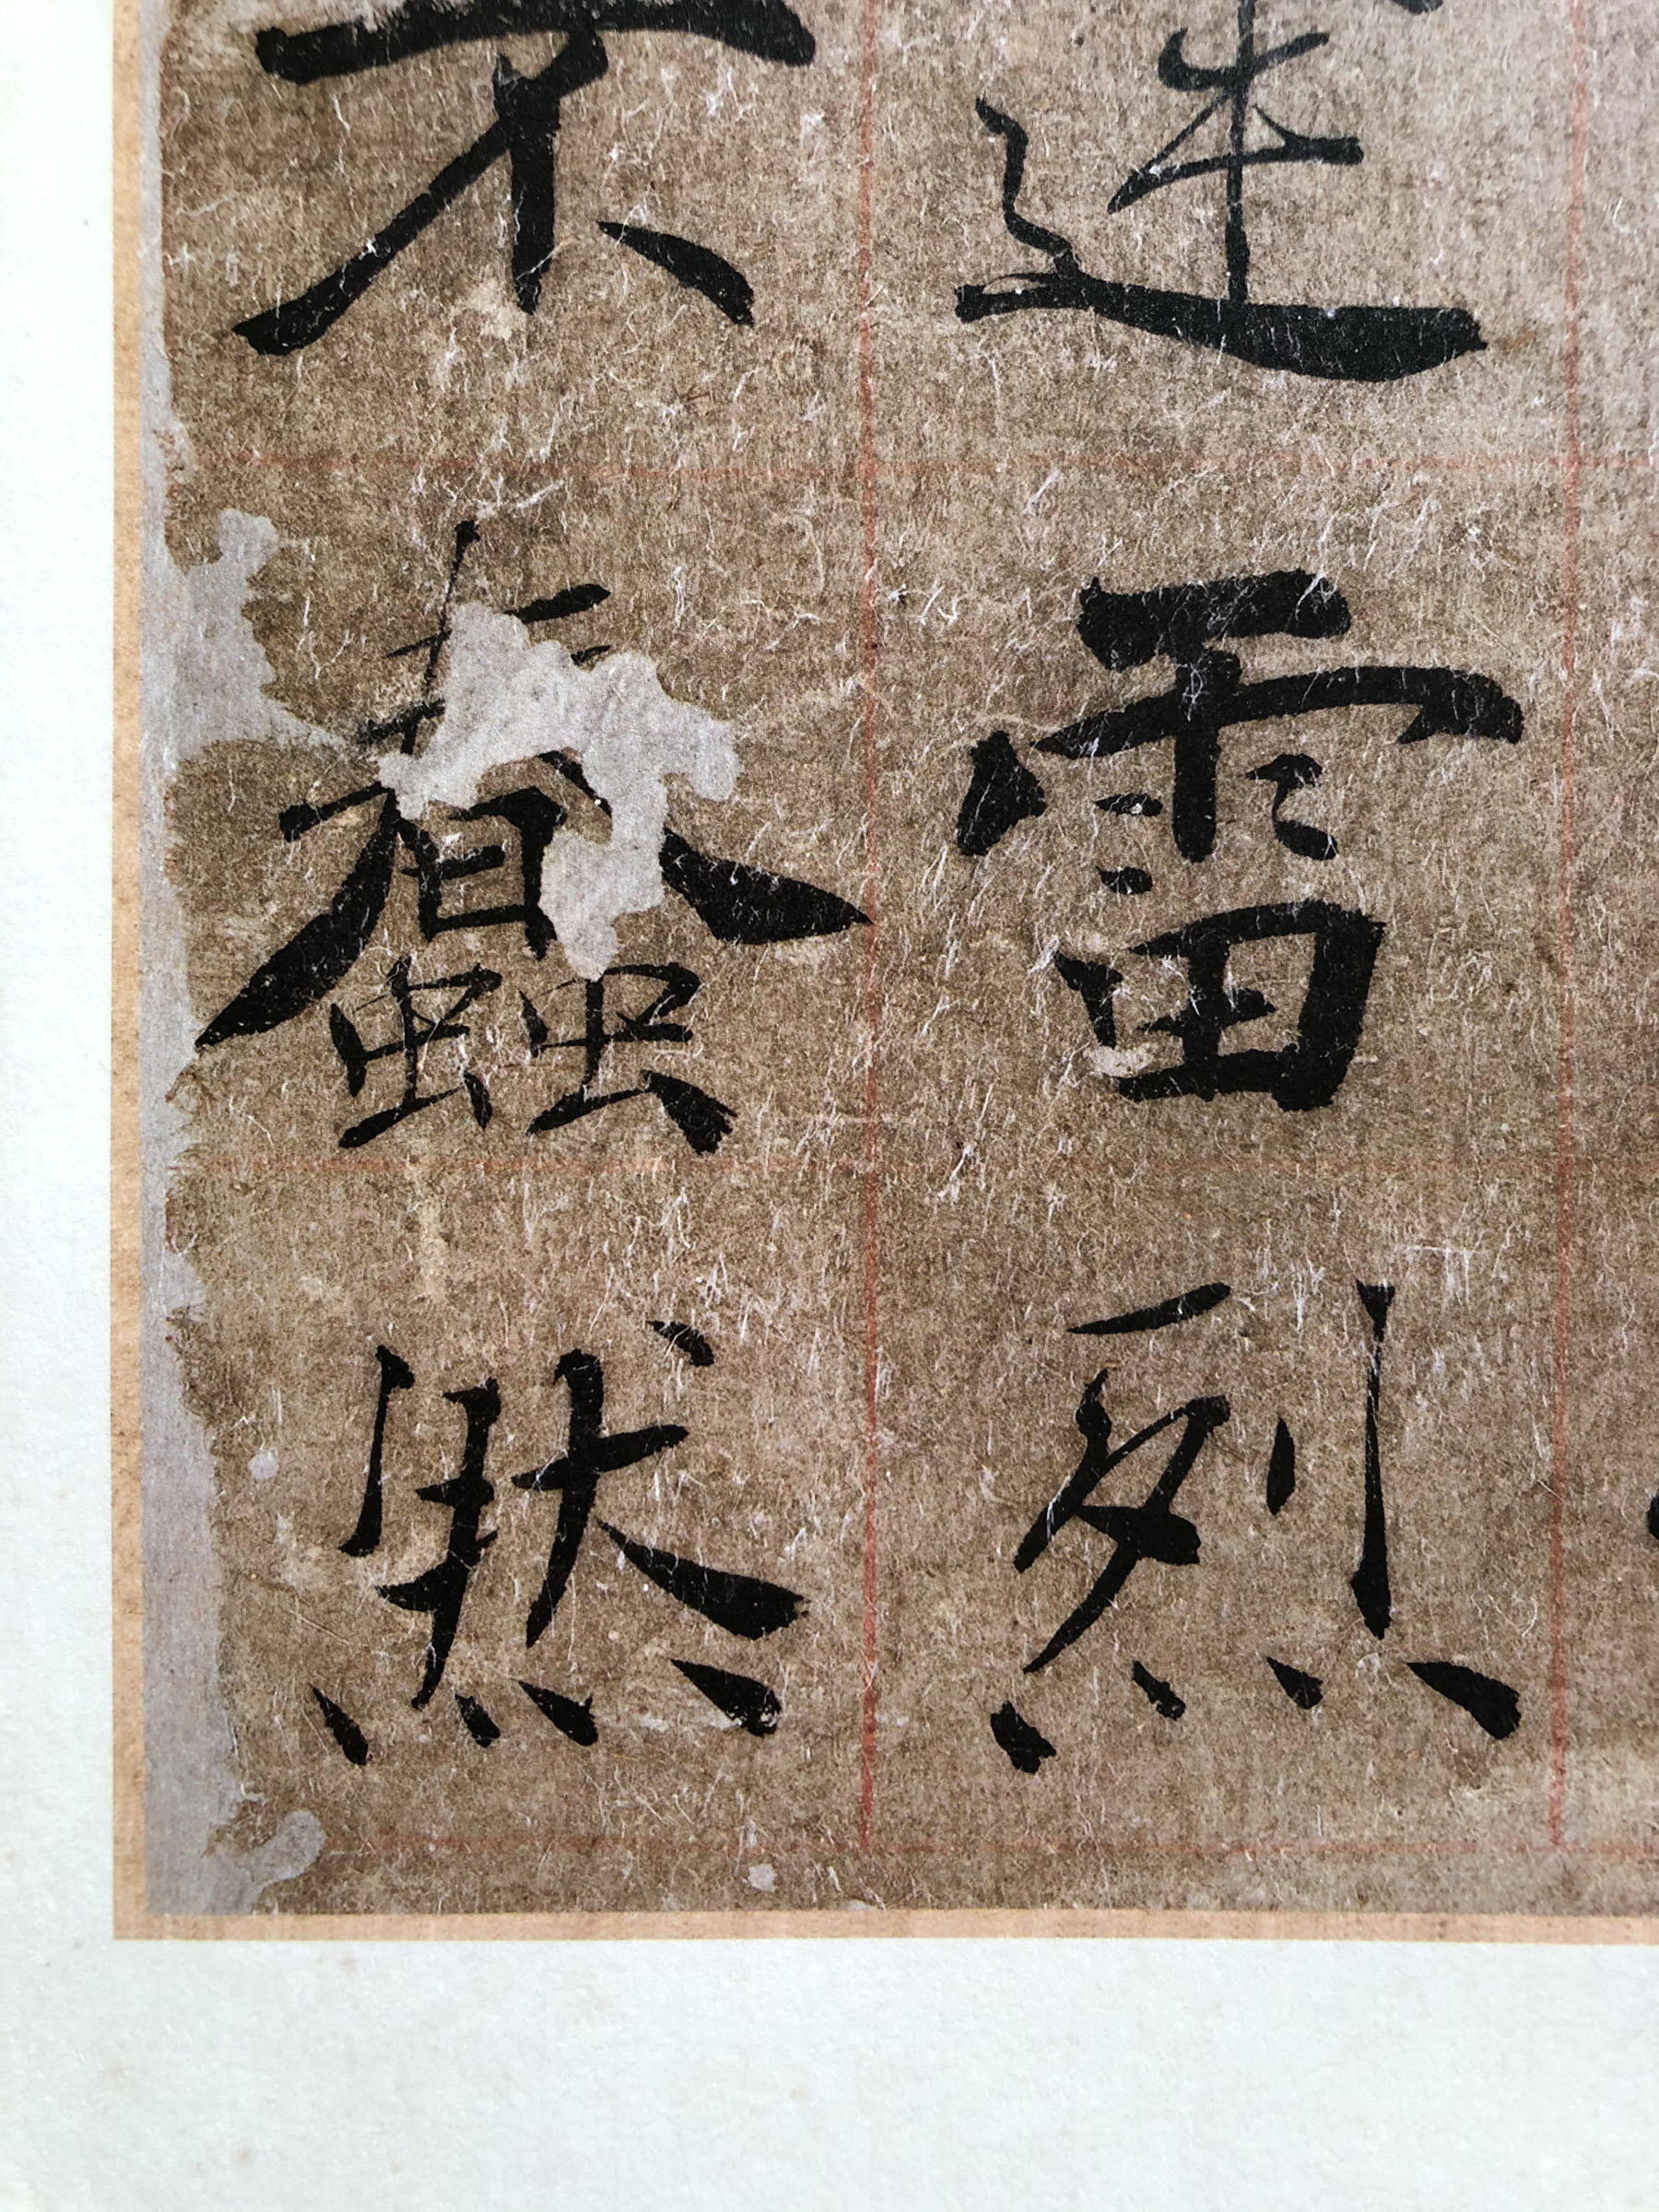 雷烈
不蠢然